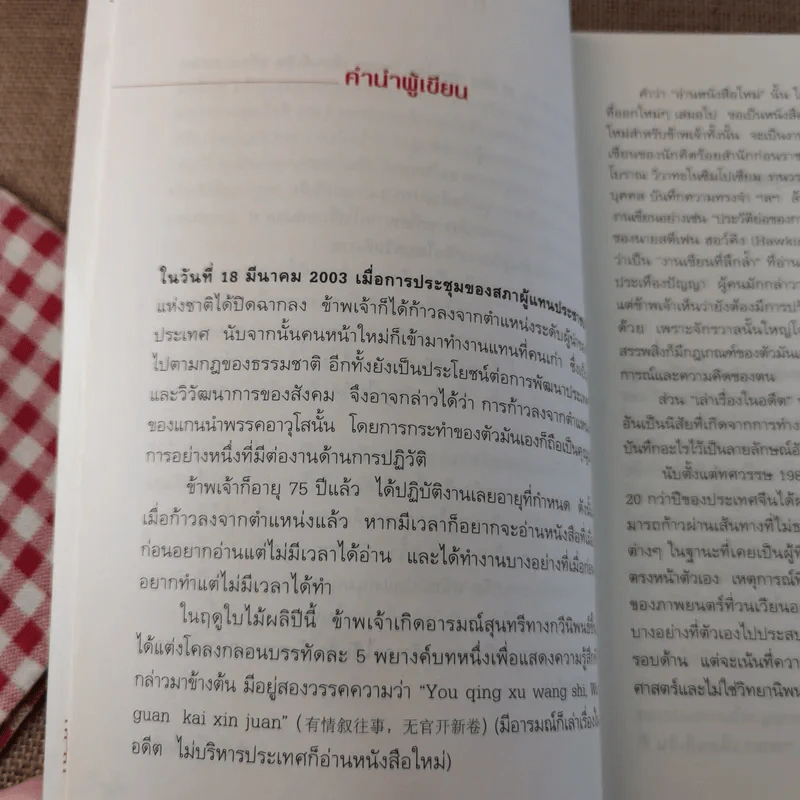 คำนำผู้เขียน
ในวันที่ 18 มีนาคม 2003 เมื่อการประชุมของสภาผู้แทนประชาชน
แห่งชาติได้ปิดฉากลง ข้าพเจ้าก็ได้ก้าวลงจากตำแหน่งระดับ
ประเทศ นับจากนั้นคนหน้าใหม่ก็เข้ามาทำงานแทนที่คนเก่า
ไปตามกฎของธรรมชาติ อีกทั้งยังเป็นประโยชน์ต่อการพัฒนา
และวิวัฒนาการของสังคม จึงอาจกล่าวได้ว่า การก้าวลงจาก
ของแกนนำพรรคอาวุโสนั้น โดยการกระทำของตัวมันเองก็ถือเป็น
การอย่างหนึ่งที่มีต่องานด้านการปฏิวัติ
ข้าพเจ้าก็อายุ 75 ปีแล้ว ได้ปฏิบัติงานเลยอายุที่กำหนด
เมื่อก้าวลงจากตำแหน่งแล้ว หากมีเวลาก็อยากจะอ่านหนังสือ
ก่อนอยากอ่านแต่ไม่มีเวลาได้อ่าน และได้ทำงานบางอย่างที่
อยากทำแต่ไม่มีเวลาได้ทำ
ในฤดูใบไม้ผลิปีนี้ ข้าพเจ้าเกิดอารมณ์สุนทรีทางกวีนิพนธ์
ได้แต่งโคลงกลอนบรรทัดละ 5 พยางค์บทหนึ่งเพื่อแสดงความรู้สึก
กล่าวมาข้างต้น มีอยู่สองวรรคความว่า “You qing xu wang shi,
guan kai xin juan” (有情叙往事，无官开新卷) (มีอารมณ์ก็เล่าเรื่อง
อดีต ไม่บริหารประเทศก็อ่านหนังสือใหม่)
คำว่า “อ่านหนังสือใหม่” นั้น
ที่ออกใหม่ๆ เสมอไป ขอเป็นหนังสือ
ใหม่สำหรับข้าพเจ้าทั้งนั้น จะเป็น
เขียนของนักคิดร้อยสำนักก่อน
โบราณ วิวาทะในซิมโปเซียม
บุคคล บันทึกความทรงจำ ฯลฯ
งานเขียนอย่างเช่น “ประวัติย่อของ
ของนายสตีเฟน ฮอว์คิง
ว่าเป็น “งานเขียนที่ลึกล้ำ” ที่อ่าน
ประเทืองปัญญา ผู้คนมักกล่าว
แต่ข้าพเจ้าเห็นว่ายังต้องมีการ
ด้วย เพราะจักรวาลนั้นใหญ่
สรรพสิ่งก็มีกฎเกณฑ์ของตัวมัน
การณ์และความคิดของตน
ส่วน “เล่าเรื่องในอดีต”
อันเป็นนิสัยที่เกิดจากการทำ
บันทึกอะไรไว้เป็นลายลักษณ์
นับตั้งแต่ทศวรรษ 198
20 กว่าปีของประเทศจีนได้
มารถก้าวผ่านเส้นทางที่ไม่
ต่างๆ ในฐานะที่เคยเป็นผู้
ตรงหน้าตัวเอง เหตุการณ์
ของภาพยนตร์ที่วนเวียน
บางอย่างที่ตัวเองไปประสบ
รอบด้าน แต่จะเน้นที่ความ
ศาสตร์และไม่ใช่วิทยานิพน